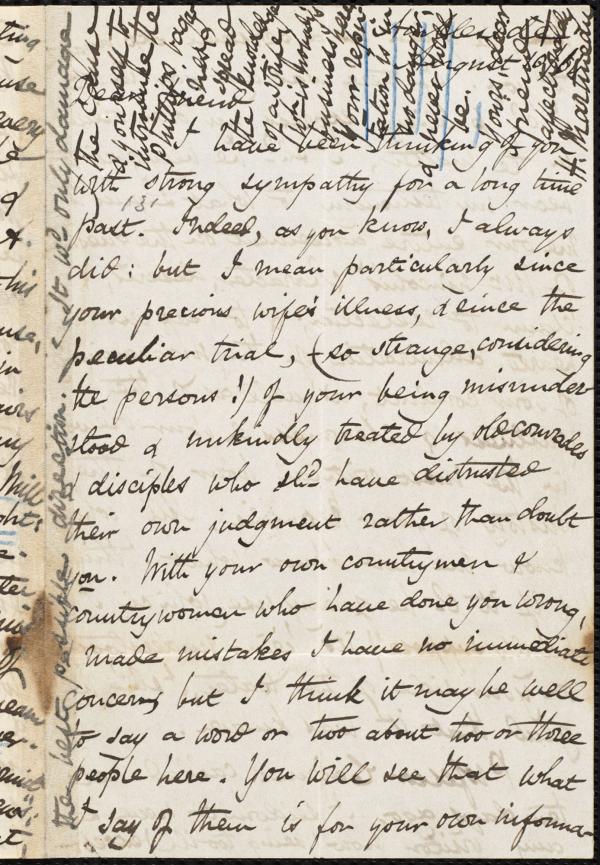 Ambleside
August 10
Dear Friend
I have been thinking of you
with strong sympathy for a long time
past. Indeed, as you know, I always
did: but I mean particularly since
your precious wife's illness, & since the
peculiar trial, (so strange, considering
the persons!) of your being misunder-
stood & unkindly treated by old comrades
& disciples who shd have distrusted
their own judgment rather than doubt
you. With your own countrymen &
countrywomen who have done you wrong,
& made mistakes I have no immediate
concern; but I think it may be well
to say a word or two about two or three
people here. You will see that what
I say of them is for your own informa-
the cause
& you next to
introduce the
have
spread
the knowledge
business here
Your repu-
tation is in
no danger,
& never will
be.
Yours, dear
friend,
affectionately
H. Martineau
the best possible direction. It wd only damage